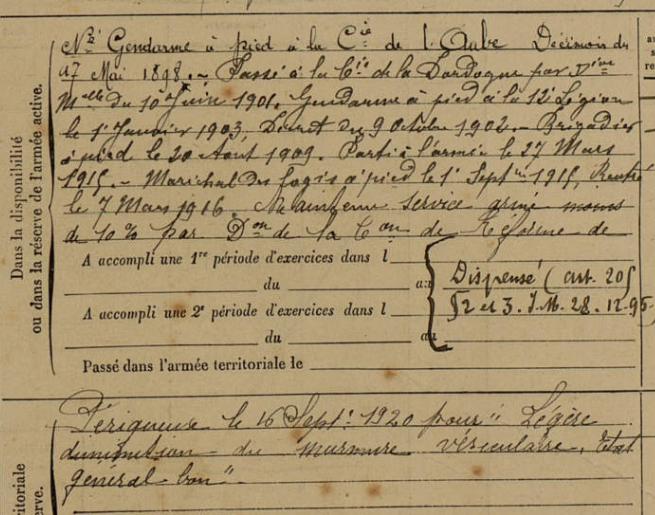 Dans la disponibilité
ou dans la réserve de l'armée active.
Né Gendarme à pied à la Cie de l'Aube Décision du
17 Mai 1898. - Passé à la Cie de la Dordogne par Dion
Mlle du 10 Juin 1901. Gendarme à pied à la 12e Légion
le 1er Janvier 1903, Décret du 9 Octobre 1902. - Brigadier
à pied le 20 Aout 1909. Parti à l'armée le 27 Mars
1915. - Maréchal des logis à pied le 1er Septbre 1915, Rentré
le 7 Mars 1916. Maintenu service armé moins
de 10% par Don de la Con de Réforme de
A accompli une 1re période d'exercices dans l
du au
A accompli une 2e période d'exercices dans l
du au
Dispensé (art. 205
§2 et 3. I.M. 28.12.95.)
Passé dans l'armée territoriale le
Périgueux le 16 Sept. 1920 pour "Légère
diminution du murmure vésiculaire, Etat
général bon".
ritoriale
erve.